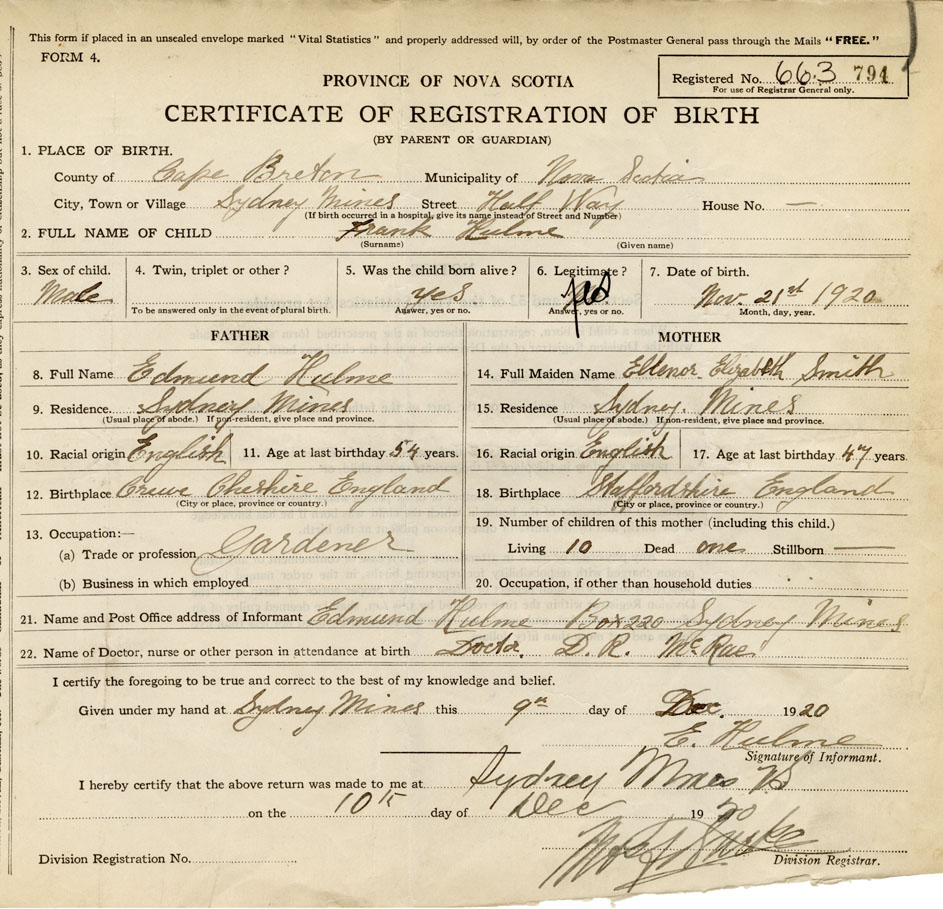 This form if placed in an unsealed envelope marked "Vital Statistics" and properly addressed will, by order of the Postmaster General pass through the Mails "FREE."
FORM 4.
Registered No. 663 794
For use of Registrar General only.
PROVINCE OF NOVA SCOTIA
CERTIFICATE OF REGISTRATION OF BIRTH
(BY PARENT OR GUARDIAN)
1. PLACE OF BIRTH.
County of Cape Breton Municipality of Nova Scotia
City, Town or Village Sydney Mines Street Half Way House No. —
(If birth occurred in a hospital, give its name instead of Street and Number)
2. FULL NAME OF CHILD Frank Hulme
(Surname) (Given name)
3. Sex of child. 4. Twin, triplet or other? 5. Was the child born alive? 6. Legitimate? 7. Date of birth.
Male yes yes Nov. 21st 1920
To be answered only in the event of plural birth. Answer, yes or no. Answer, yes or no. Month, day, year.
FATHER MOTHER
8. Full Name Edmund Hulme 14. Full Maiden Name Ellenor Elizabeth Smith
9. Residence. Sydney Mines 15. Residence Sydney. Mines
(Usual place of abode.) If non-resident, give place and province. (Usual place of abode.) If non-resident, give place and province.
10. Racial origin English 11. Age at last birthday 54 years. 16. Racial origin English 17. Age at last birthday 47 years.
12. Birthplace Crewe Cheshire England 18. Birthplace Staffordshire England
(City or place, province or country.) (City or place, province or country.)
13. Occupation:— 19. Number of children of this mother (including this child.)
(a) Trade or profession Gardener Living 10 Dead one Stillborn —
(b) Business in which employed 20. Occupation, if other than household duties
21. Name and Post Office address of Informant Edmund Hulme Box 220 Sydney Mines
22. Name of Doctor, nurse or other person in attendance at birth Doctor. D. R. McRae
I certify the foregoing to be true and correct to the best of my knowledge and belief.
Given under my hand at Sydney Mines this 9th day of Dec. 1920
E. Hulme
Signature of Informant.
I hereby certify that the above return was made to me at Sydney Mines
on the 10th day of Dec 1920
Division Registration No. Division Registrar.